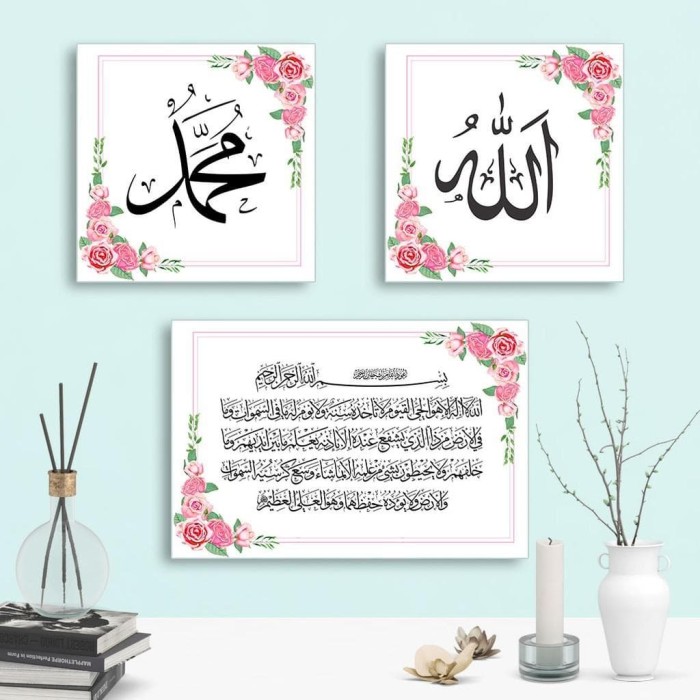 الله
محمد
بسم الله الرحمن الرحيم
الله لا إله إلا هو الحي القيوم لا تأخذه سنة ولا نوم له ما في السموات وما
في الأرض من ذا الذي يشفع عنده إلا بإذنه يعلم ما بين أيديهم وما
خلفهم ولا يحيطون بشيء من علمه إلا بما شاء وسع كرسيه السموات
والأرض ولا يؤوده حفظهما وهو العلي العظيم
MAPPLETHORPE Perfection in Form